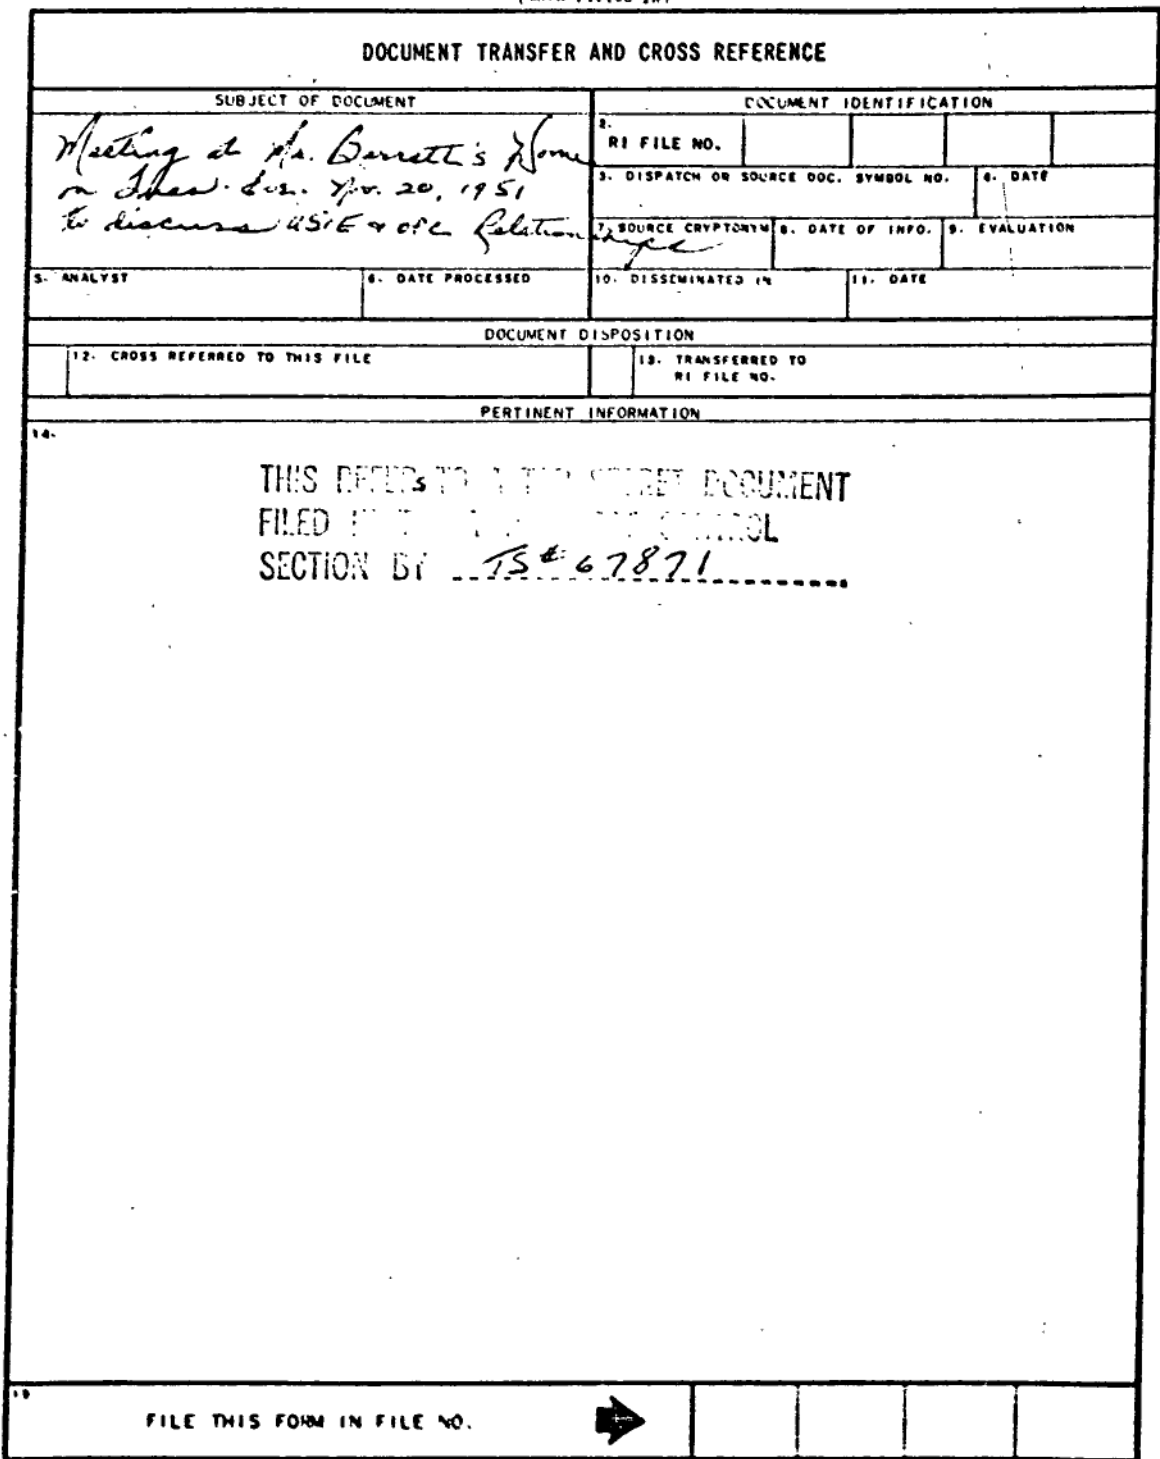 DOCUMENT TRANSFER AND CROSS REFERENCE
SUBJECT OF DOCUMENT
Meeting at Mr. Barrett's Home
on Tues. Eve. Nov. 20, 1951
to discuss USIE & OPC Relationships
DOCUMENT IDENTIFICATION
2. RI FILE NO.
3. DISPATCH OR SOURCE DOC. SYMBOL NO.
4. DATE
7. SOURCE CRYPTONYM
8. DATE OF INFO.
9. EVALUATION
5. ANALYST
6. DATE PROCESSED
10. DISSEMINATED IN
11. DATE
DOCUMENT DISPOSITION
12. CROSS REFERRED TO THIS FILE
13. TRANSFERRED TO
RI FILE NO.
PERTINENT INFORMATION
14.
THIS REFERS TO A TOP SECRET DOCUMENT
FILED CONTROL
SECTION BY TS# 67871
15
FILE THIS FORM IN FILE NO.